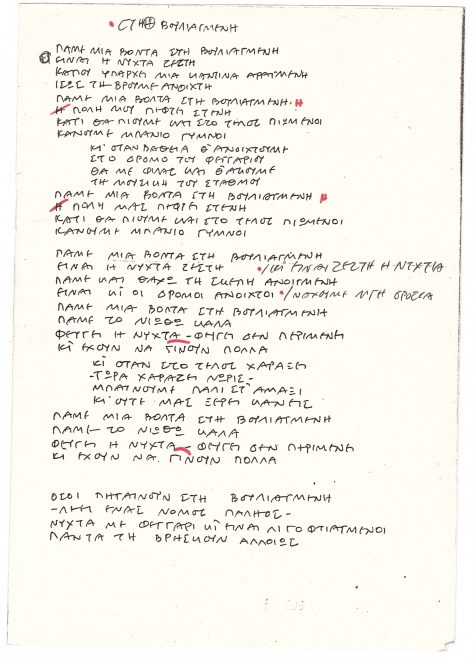 ΣΤΗ ΒΟΥΛΙΑΓΜΕΝΗ
ΠΑΜΕ ΜΙΑ ΒΟΛΤΑ ΣΤΗ ΒΟΥΛΙΑΓΜΕΝΗ
ΕΙΝΑΙ Η ΝΥΧΤΑ ΖΕΣΤΗ
ΚΑΠΟΥ ΥΠΑΡΧΕΙ ΜΙΑ ΚΑΝΤΙΝΑ ΑΡΑΓΜΕΝΗ
ΙΣΩΣ ΤΗ ΒΡΟΥΜΕ ΑΝΟΙΧΤΗ
ΠΑΜΕ ΜΙΑ ΒΟΛΤΑ ΣΤΗ ΒΟΥΛΙΑΓΜΕΝΗ
Η ΠΟΛΗ ΜΟΥ ΠΕΦΤΕΙ ΣΤΕΝΗ
ΚΑΤΙ ΘΑ ΠΙΟΥΜΕ ΚΑΙ ΣΤΟ ΤΕΛΟΣ ΠΙΩΜΕΝΟΙ
ΚΑΝΟΥΜΕ ΜΠΑΝΙΟ ΓΥΜΝΟΙ
ΚΙ ΟΤΑΝ ΒΑΘΕΙΑ Θ' ΑΝΟΙΧΤΟΥΜΕ
ΣΤΟ ΔΡΟΜΟ ΤΟΥ ΦΕΓΓΑΡΙΟΥ
ΘΑ ΜΕ ΦΙΛΑΣ ΚΑΙ Θ' ΑΚΟΥΜΕ
ΤΗ ΜΟΥΣΙΚΗ ΤΟΥ ΣΤΑΘΜΟΥ
ΠΑΜΕ ΜΙΑ ΒΟΛΤΑ ΣΤΗ ΒΟΥΛΙΑΓΜΕΝΗ
Η ΠΟΛΗ ΜΑΣ ΠΕΦΤΕΙ ΣΤΕΝΗ
ΚΑΤΙ ΘΑ ΠΙΟΥΜΕ ΚΑΙ ΣΤΟ ΤΕΛΟΣ ΠΙΩΜΕΝΟΙ
ΚΑΝΟΥΜΕ ΜΠΑΝΙΟ ΓΥΜΝΟΙ
ΠΑΜΕ ΜΙΑ ΒΟΛΤΑ ΣΤΗ ΒΟΥΛΙΑΓΜΕΝΗ
ΕΙΝΑΙ Η ΝΥΧΤΑ ΖΕΣΤΗ /ΚΙ ΕΙΝΑΙ ΖΕΣΤΗ Η ΝΥΧΤΙΑ
ΠΑΜΕ ΚΑΙ ΘΑΧΩ ΤΗ ΣΚΕΠΗ ΑΝΟΙΓΜΕΝΗ
ΕΙΝΑΙ ΚΙ ΟΙ ΔΡΟΜΟΙ ΑΝΟΙΧΤΟΙ / ΝΑΧΟΥΜΕ ΛΙΓΗ ΔΡΟΣΙΑ
ΠΑΜΕ ΜΙΑ ΒΟΛΤΑ ΣΤΗ ΒΟΥΛΙΑΓΜΕΝΗ
ΠΑΜΕ ΤΟ ΝΙΩΘΩ ΚΑΛΑ
ΦΕΥΓΕΙ Η ΝΥΧΤΑ - ΦΕΥΓΕΙ ΔΕΝ ΠΕΡΙΜΕΝΕΙ
ΚΙ ΕΧΟΥΝ ΝΑ ΓΙΝΟΥΝ ΠΟΛΛΑ
ΚΙ ΟΤΑΝ ΣΤΟ ΤΕΛΟΣ ΧΑΡΑΞΕΙ
-ΤΩΡΑ ΧΑΡΑΖΕΙ ΝΩΡΙΣ-
ΜΠΑΙΝΟΥΜΕ ΠΑΛΙ ΣΤ' ΑΜΑΞΙ
ΚΙ ΟΥΤΕ ΜΑΣ ΞΕΡΕΙ ΚΑΝΕΙΣ
ΠΑΜΕ ΜΙΑ ΒΟΛΤΑ ΣΤΗ ΒΟΥΛΙΑΓΜΕΝΗ
ΠΑΜΕ ΤΟ ΝΙΩΘΩ ΚΑΛΑ
ΦΕΥΓΕΙ Η ΝΥΧΤΑ - ΦΕΥΓΕΙ ΔΕΝ ΠΕΡΙΜΕΝΕΙ
ΚΙ ΕΧΟΥΝ ΝΑ ΓΙΝΟΥΝ ΠΟΛΛΑ
ΟΣΟΙ ΠΗΓΑΙΝΟΥΝ ΣΤΗ ΒΟΥΛΙΑΓΜΕΝΗ
-ΛΕΕΙ ΕΝΑΣ ΝΟΜΟΣ ΠΑΛΗΟΣ-
ΝΥΧΤΑ ΜΕ ΦΕΓΓΑΡΙ ΚΙ ΕΙΝΑΙ ΛΙΓΟ ΦΤΙΑΓΜΕΝΟΙ
ΠΑΝΤΑ ΤΗ ΒΡΗΣΚΟΥΝ ΑΛΛΟΙΩΣ